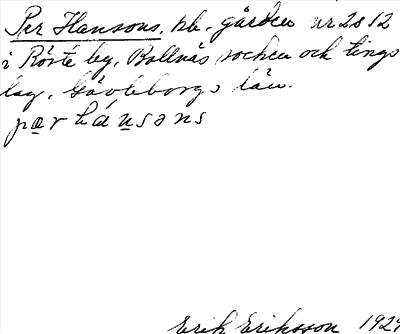 Per Hansons, hb. gården nr 2 o 12
i Röste by, Bollnäs socken och tings
lag, Gävleborgs län.
pær hánsəns
Erik Eriksson 192